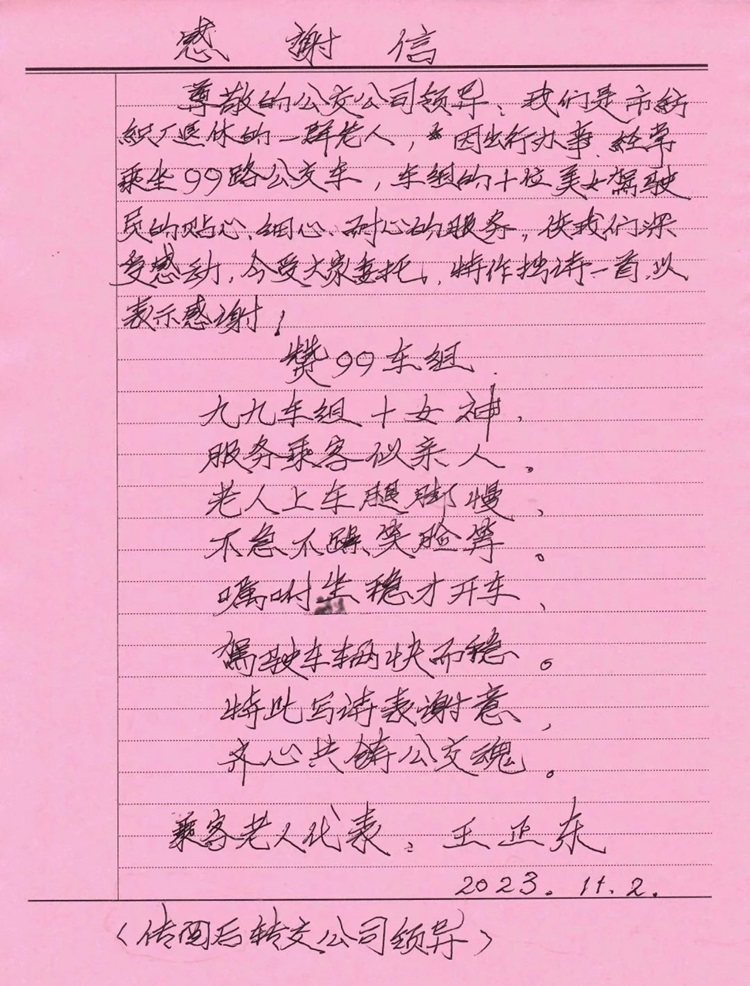 感谢信
尊敬的公交公司领导、我们是市纺
织厂退休的一群老人，因出行办事、经常
乘坐99路公交车，车组的十位美女驾驶
员的贴心、细心、耐心的服务，使我们深
受感动，今受大家委托，特作拙诗一首，以
表示感谢！
赞99车组
九九车组十女神，
服务乘客似亲人。
老人上车腿脚慢、
不急不躁笑脸等。
嘱咐坐稳才开车、
驾驶车辆快而稳。
特此写诗表谢意，
齐心共铸公交魂。
乘客老人代表：王正东
2023.11.2.
（传阅后转交公司领导）